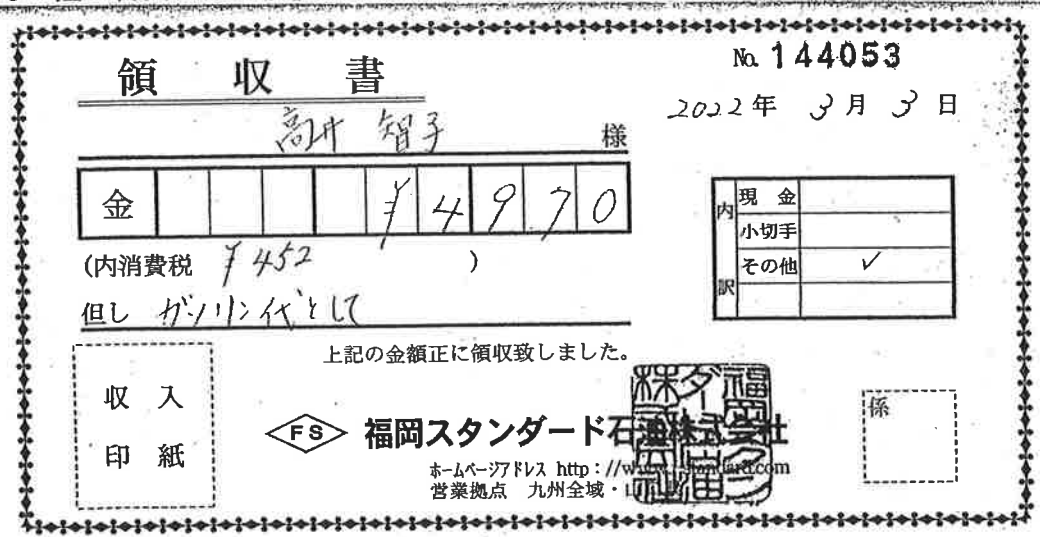 領収書
No. 144053
2022年 3月 3日
高井 智子 様
金 ¥4970
(内消費税 ¥452 )
但し ガソリン代として
内訳
現金
小切手
その他 ✓
上記の金額正に領収致しました。
収入
印紙
FS 福岡スタンダード石油株式会社
係
ホームページアドレス http://www
営業拠点 九州全域・